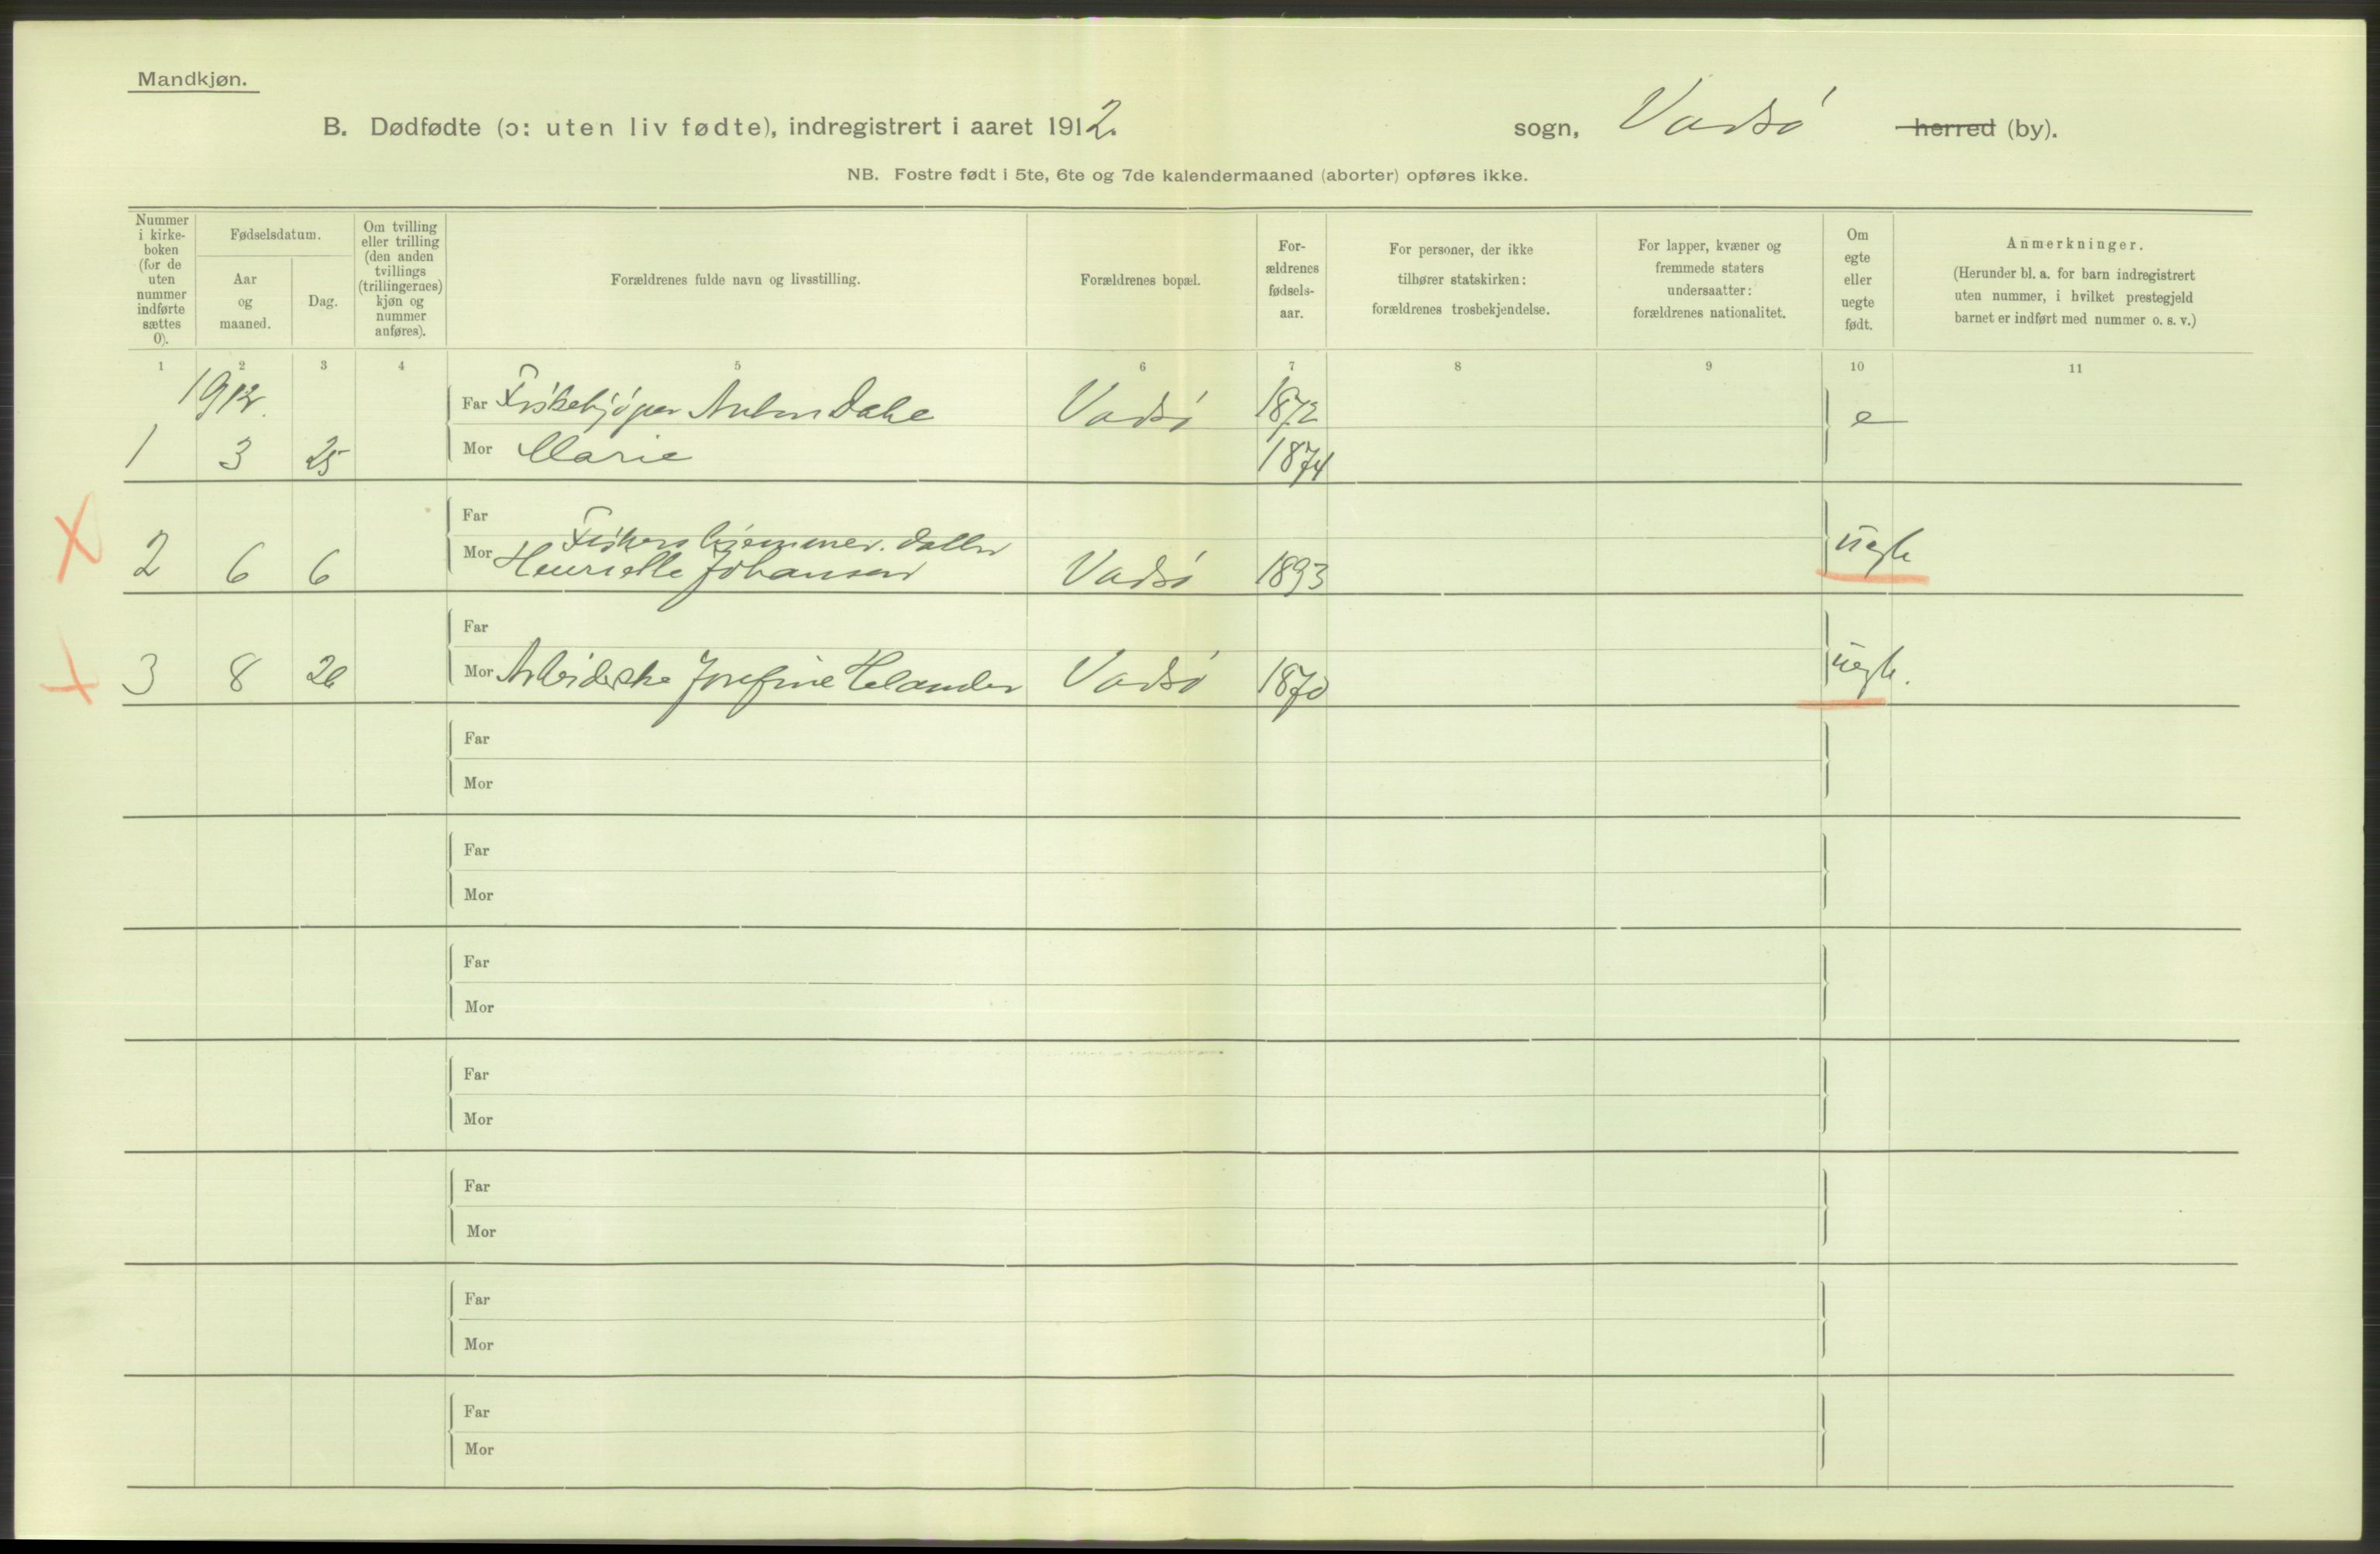 Mandkjøn.
B. Dødfødte (ɔ: uten liv fødte), indregistrert i aaret 1912. sogn, Vadsø herred (by).
NB. Fostre født i 5te, 6te og 7de kalendermaaned (aborter) opføres ikke.
Nummer i kirke-boken (for de uten nummer indførte sættes 0).
Fødselsdatum.
Aar og maaned.
Dag.
Om tvilling eller trilling (den anden tvillings (trillingernes) kjøn og nummer anføres).
Forældrenes fulde navn og livsstilling.
Forældrenes bopæl.
For-ældrenes fødsels-aar.
For personer, der ikke tilhører statskirken: forældrenes trosbekjendelse.
For lapper, kvæner og fremmede staters undersaatter: forældrenes nationalitet.
Om egte eller uegte født.
Anmerkninger.
(Herunder bl. a. for barn indregistrert uten nummer, i hvilket prestegjeld barnet er indført med nummer o. s. v.)
1 2 3 4 5 6 7 8 9 10 11
1912.
Far Fiskekjøper Anton Dahl Vadsø 1872 e
1 3 25 Mor Marie 1874
Far
Fiskers hjemmev. datter
2 6 6 Mor Henriette Johansen Vadsø 1893 uegte
Far
3 8 26 Mor Arbeiderske Josefine Helander Vadsø 1870 uegte.
Far
Mor
Far
Mor
Far
Mor
Far
Mor
Far
Mor
Far
Mor
Far
Mor